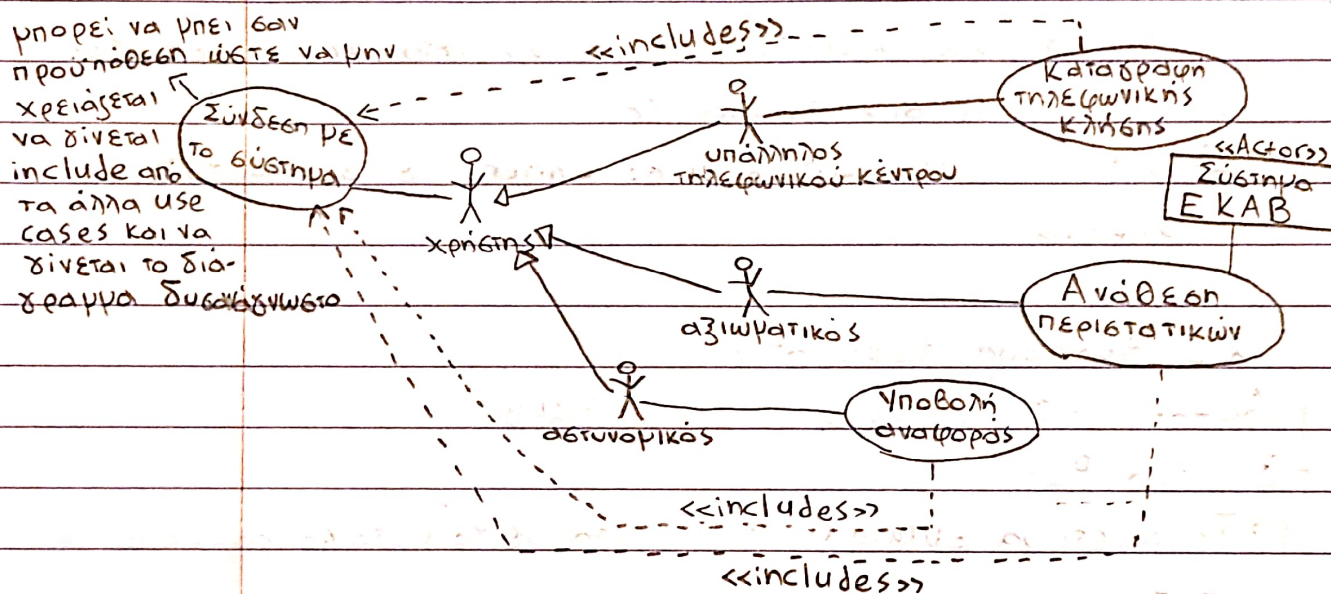 μπορεί να μπει σαν
προϋπόθεση ώστε να μην
χρειάζεται
να γίνεται
include από
τα άλλα use
cases και να
γίνεται το διά-
γραμμα δυσανάγνωστο
Σύνδεση με
το σύστημα
<<includes>>
Καταγραφή
τηλεφωνικής
κλήσης
υπάλληλος
τηλεφωνικού κέντρου
<<Actor>>
Σύστημα
ΕΚΑΒ
χρήστης
αξιωματικός
Ανάθεση
περιστατικών
αστυνομικός
Υποβολή
αναφοράς
<<includes>>
<<includes>>